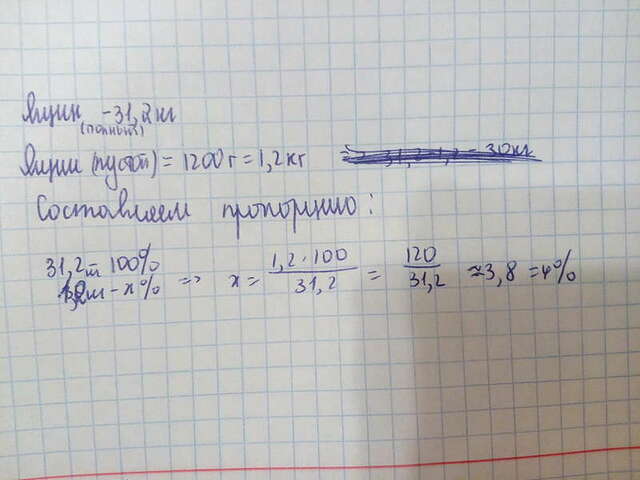 Ящик -31,2 кг
(полный)
Ящик (пустой) = 1200 г = 1,2 кг = 31,2-1,2 = 30 кг
Составляем пропорцию:
31,2 - 100%
1,2 - x% => x = 1,2·100/31,2 = 120/31,2 ≈3,8 =4%